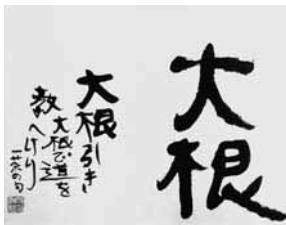 大根
大根引き
大根で道を
教へけり
一茶の句